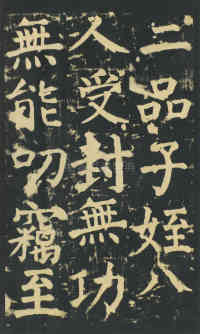 二品子姪八
人受封無功
無能叨竊至